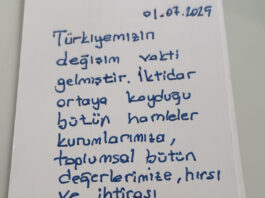 01.07.2025
Türkiyemizin
değişim vakti
gelmiştir. İktidar
ortaya koyduğu
bütün hamleler
kurumlarımıza,
toplumsal bütün
değerlerimize, hırsı
ve ihtirası